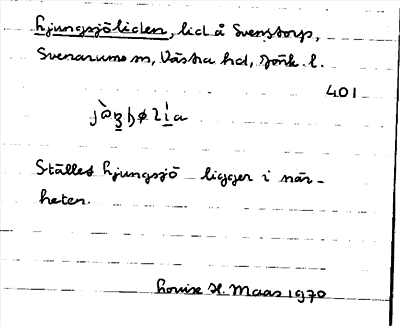 Ljungsjöliden, lid å Svenstorp,
Svenarums sn, Västra hd, Jönk. l.
401
Stället Ljungsjö ligger i när-
heten.
Louise H. Maas 1970